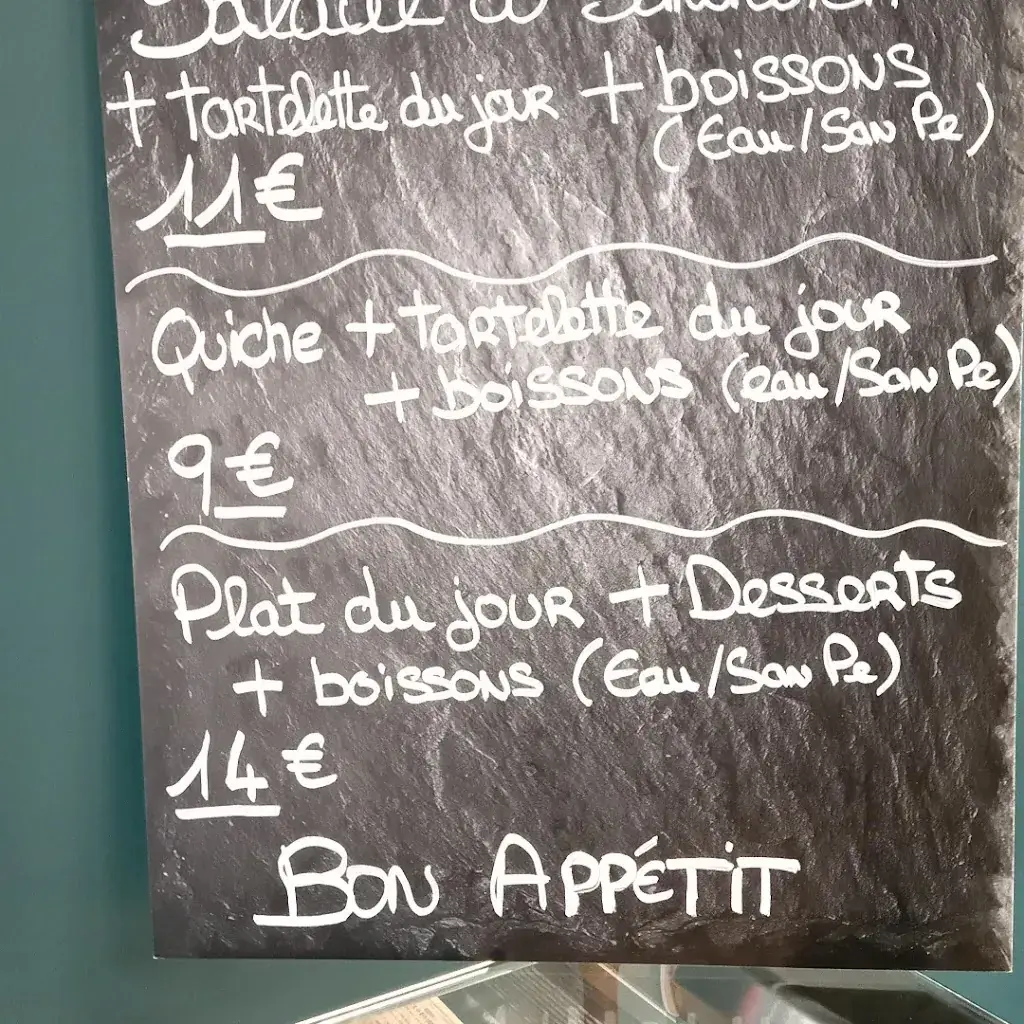 Salade ou Sandwich
+ Tartelette du jour + boissons
(Eau/San Pe)
11€
Quiche + Tartelette du jour
+ boissons (eau/San Pe)
9€
Plat du jour + Desserts
+ boissons (Eau/San Pe)
14€
BON APPÉTIT